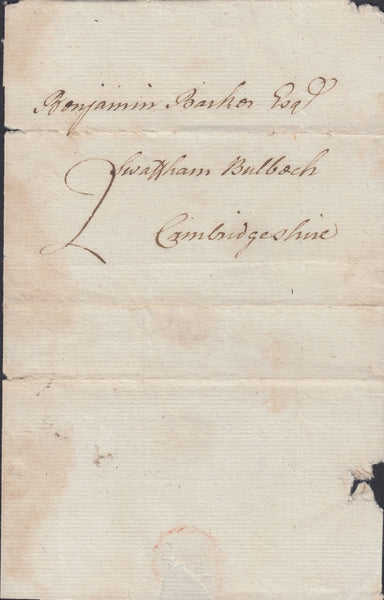 Benjamin Barker Esqr
2 Swaffham Bulbeck
Cambridgeshire